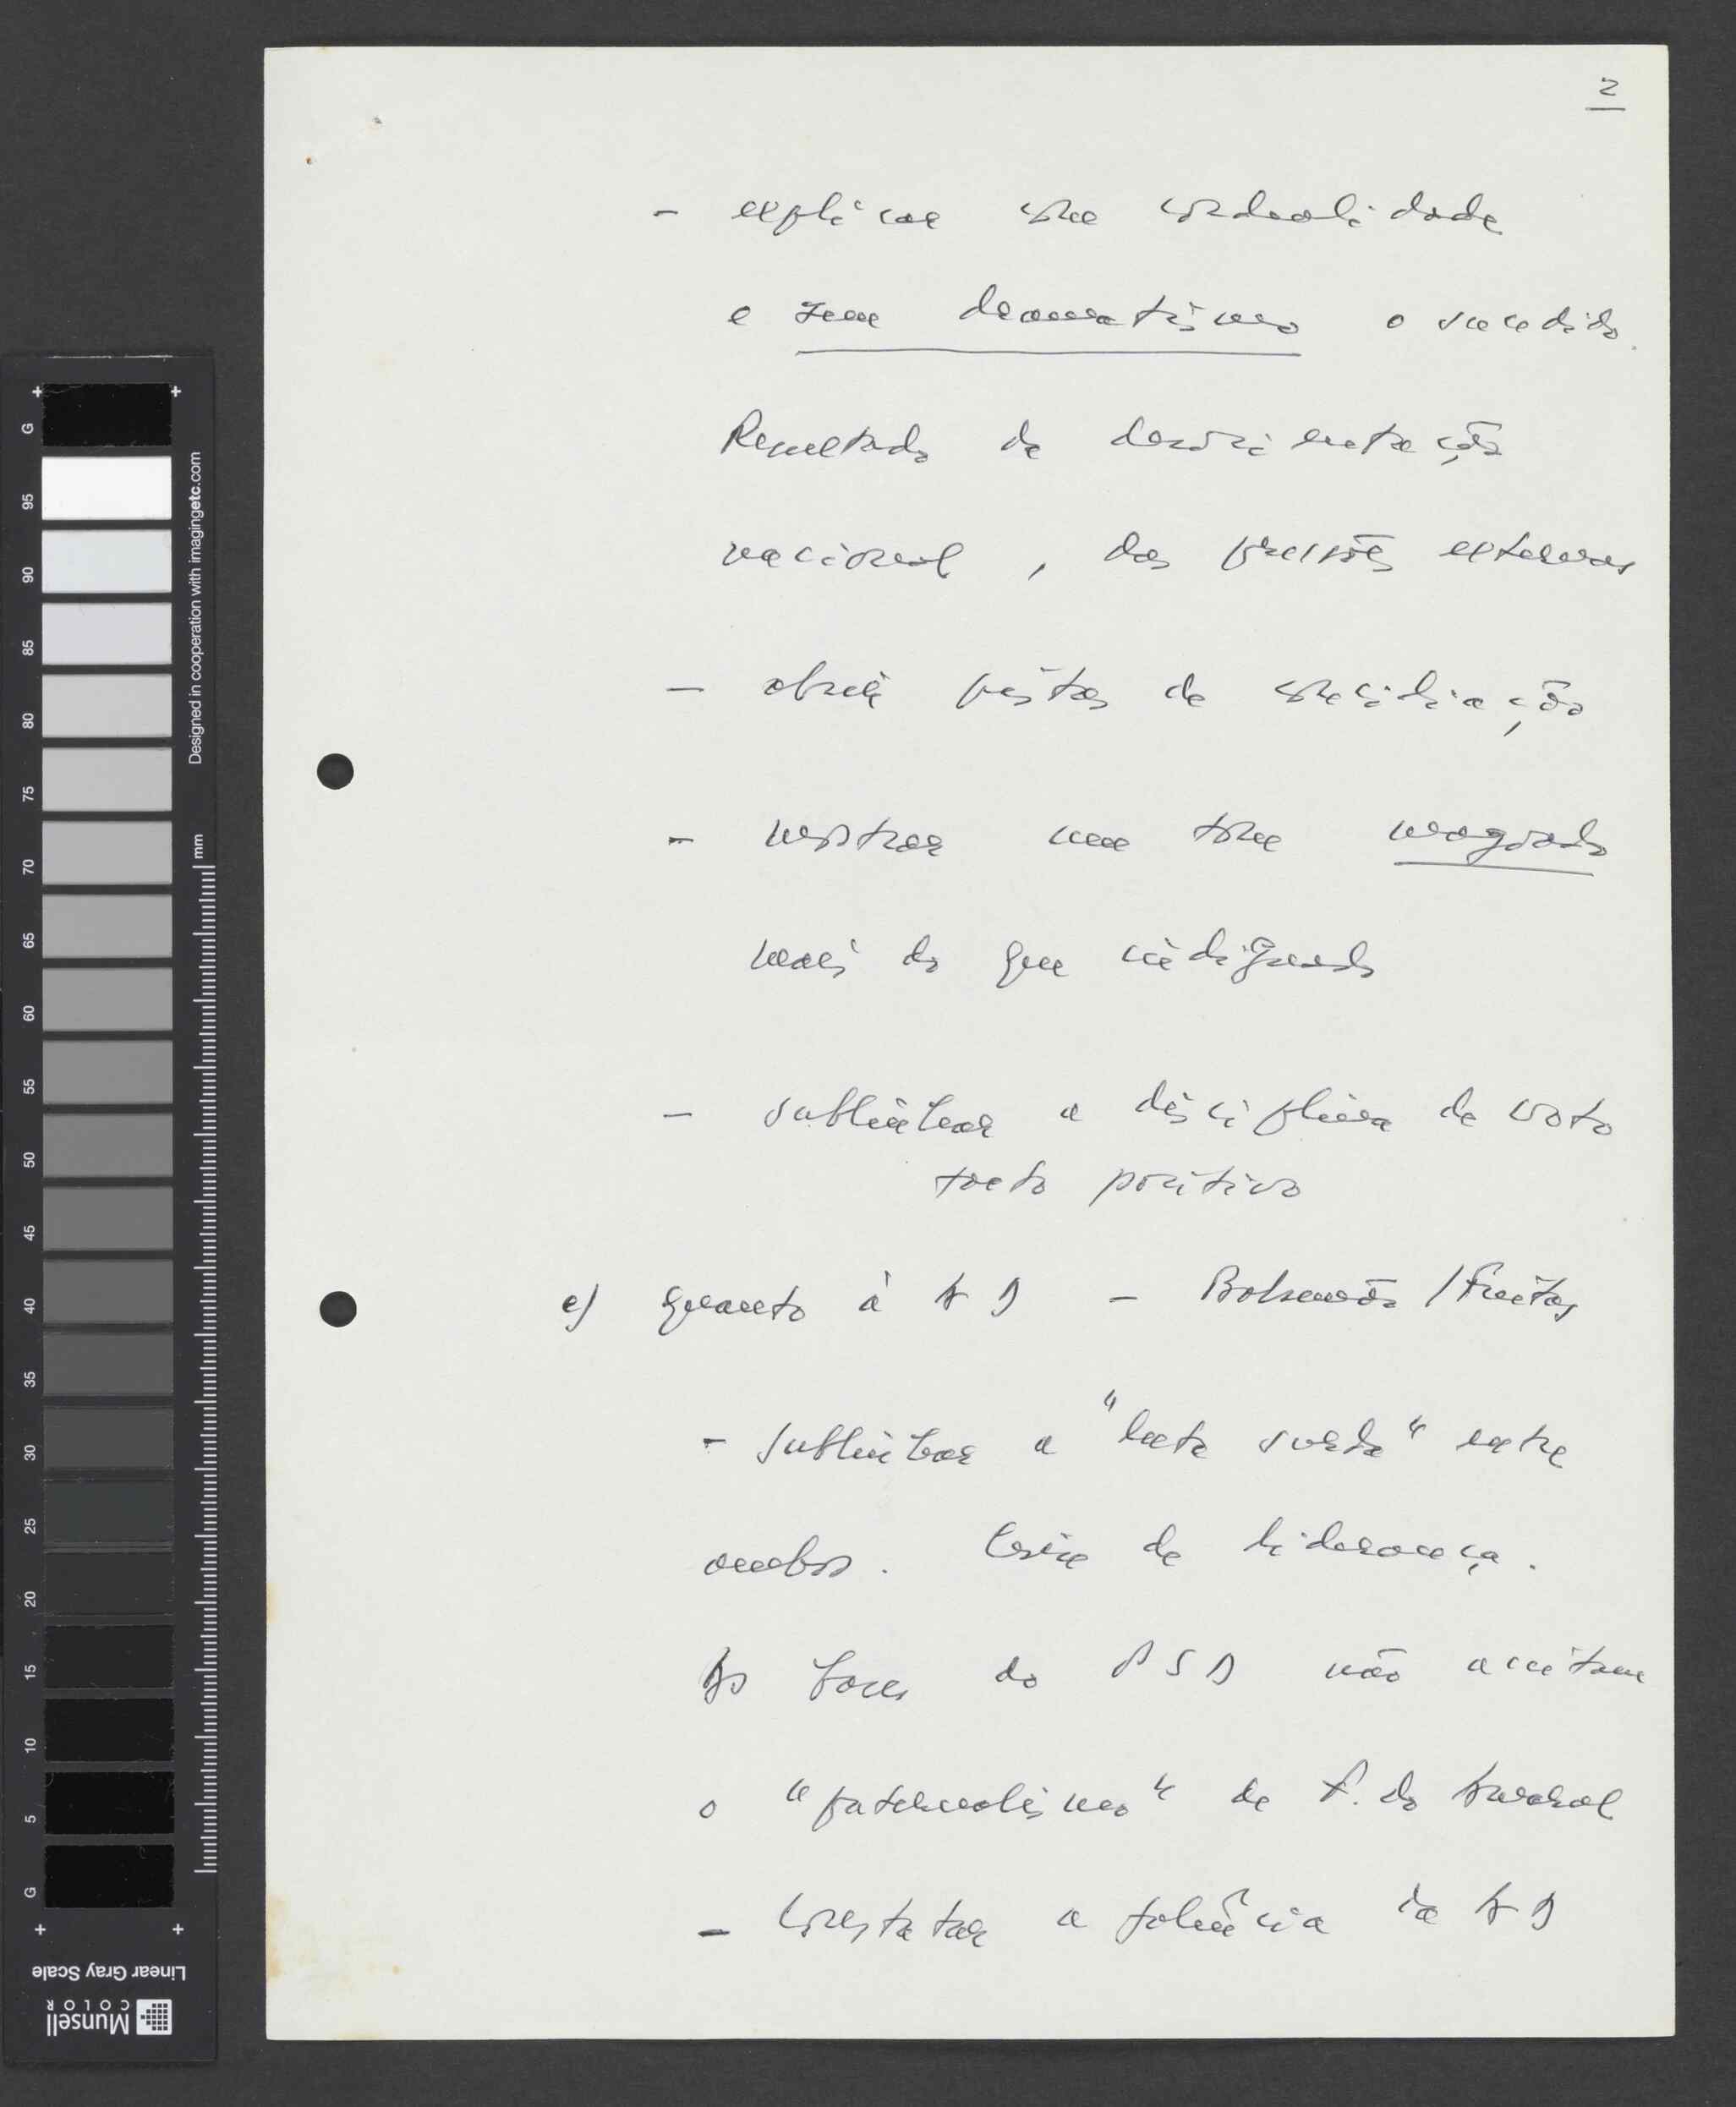 2
- explicar com cordealidade
e sem dramatismo o sucedido.
Resultado da desorientação
nacional, das pressões externas
- abrir pistas de conciliação
- mostrar um tom magoado
mais do que indignado
- sublinhar a disciplina de voto
facto positivo
e) Quanto à AD - Balsemão / Freitas
- sublinhar a "luta surda" entre
ambos. Crise de liderança.
As bases do PSD não aceitam
o "paternalismo" de F. do Amaral
- Constatar a falência da AD
G
95
90
85
80
75
70
65
60
55
50
45
40
35
30
25
20
15
10
5
G
Designed in cooperation with imagingetc.com
mm
Linear Gray Scale
Munsell
COLOR